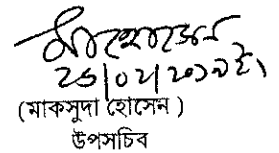 ২৬|০২|২০১৯ইং
(মাকসুদা হোসেন)
উপসচিব